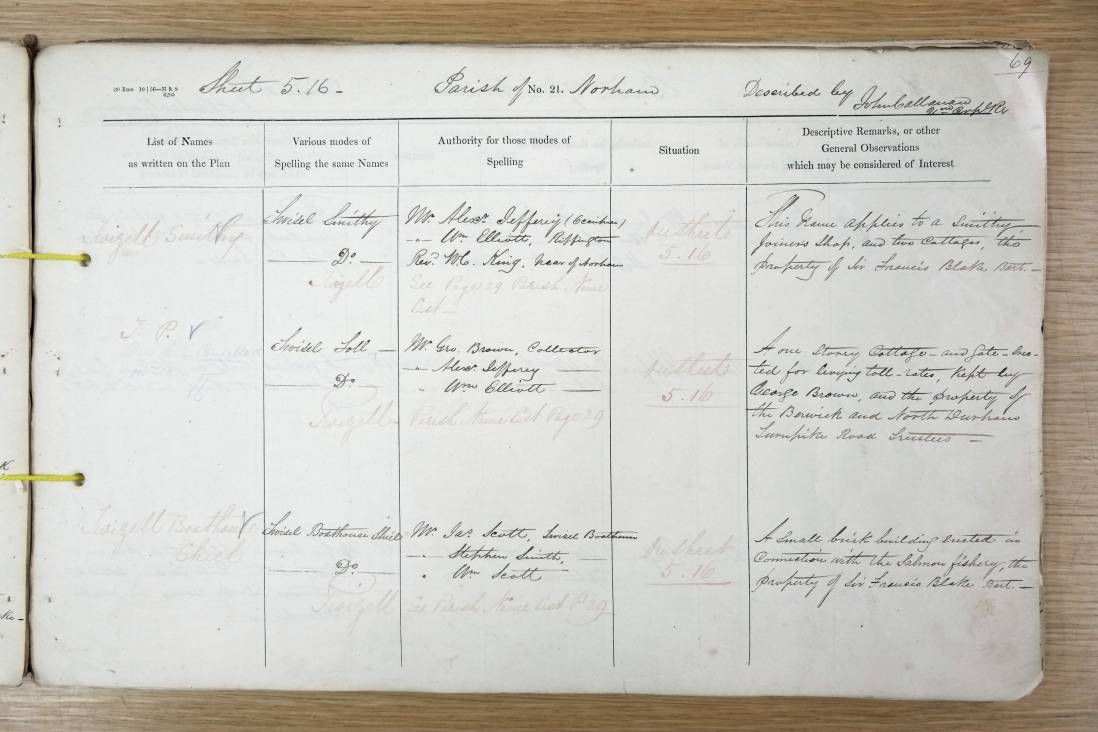 69
Sheet 5.16 -
Parish of No. 21. Norham
Described by John Callanan
List of Names
as written on the Plan
Various modes of
Spelling the same Names
Authority for those modes of
Spelling
Situation
Descriptive Remarks, or other
General Observations
which may be considered of Interest
Twizell Smithy
Twisel Smithy
Do.
Twizell
Mr. Alexr. Jefferey
" Wm. Elliott,
Revd. Mr. King, near of Norham
See Page 29 Parish Name
List -
On Sheet
5.16
This Name applies to a Smithy,
Joiners Shop, and two Cottages, the
Property of Sir Francis Blake Bart. -
T. P.
Twisel Toll
Do.
Twizell
Mr. Geo. Brown, Collector
" Alexr. Jefferey
" Wm. Elliott
Parish Name List Page 29
On Sheet
5.16
A one Storey Cottage - and gate - Erec-
ted for levying toll-rates, Kept by
George Brown, and the property of
the Berwick and North Durham
Turnpike Road Trustees -
Twizell Boathouse
Shiel
Twisel Boathouse Shiel
Do.
Twizell
Mr. Jas. Scott, Twisel Boathouse
" Stephen Smith,
" Wm. Scott
See Parish Name List P 29
On Sheet
5.16
A small brick building erected in
Connection with the Salmon fishery, the
Property of Sir Francis Blake Bart. -